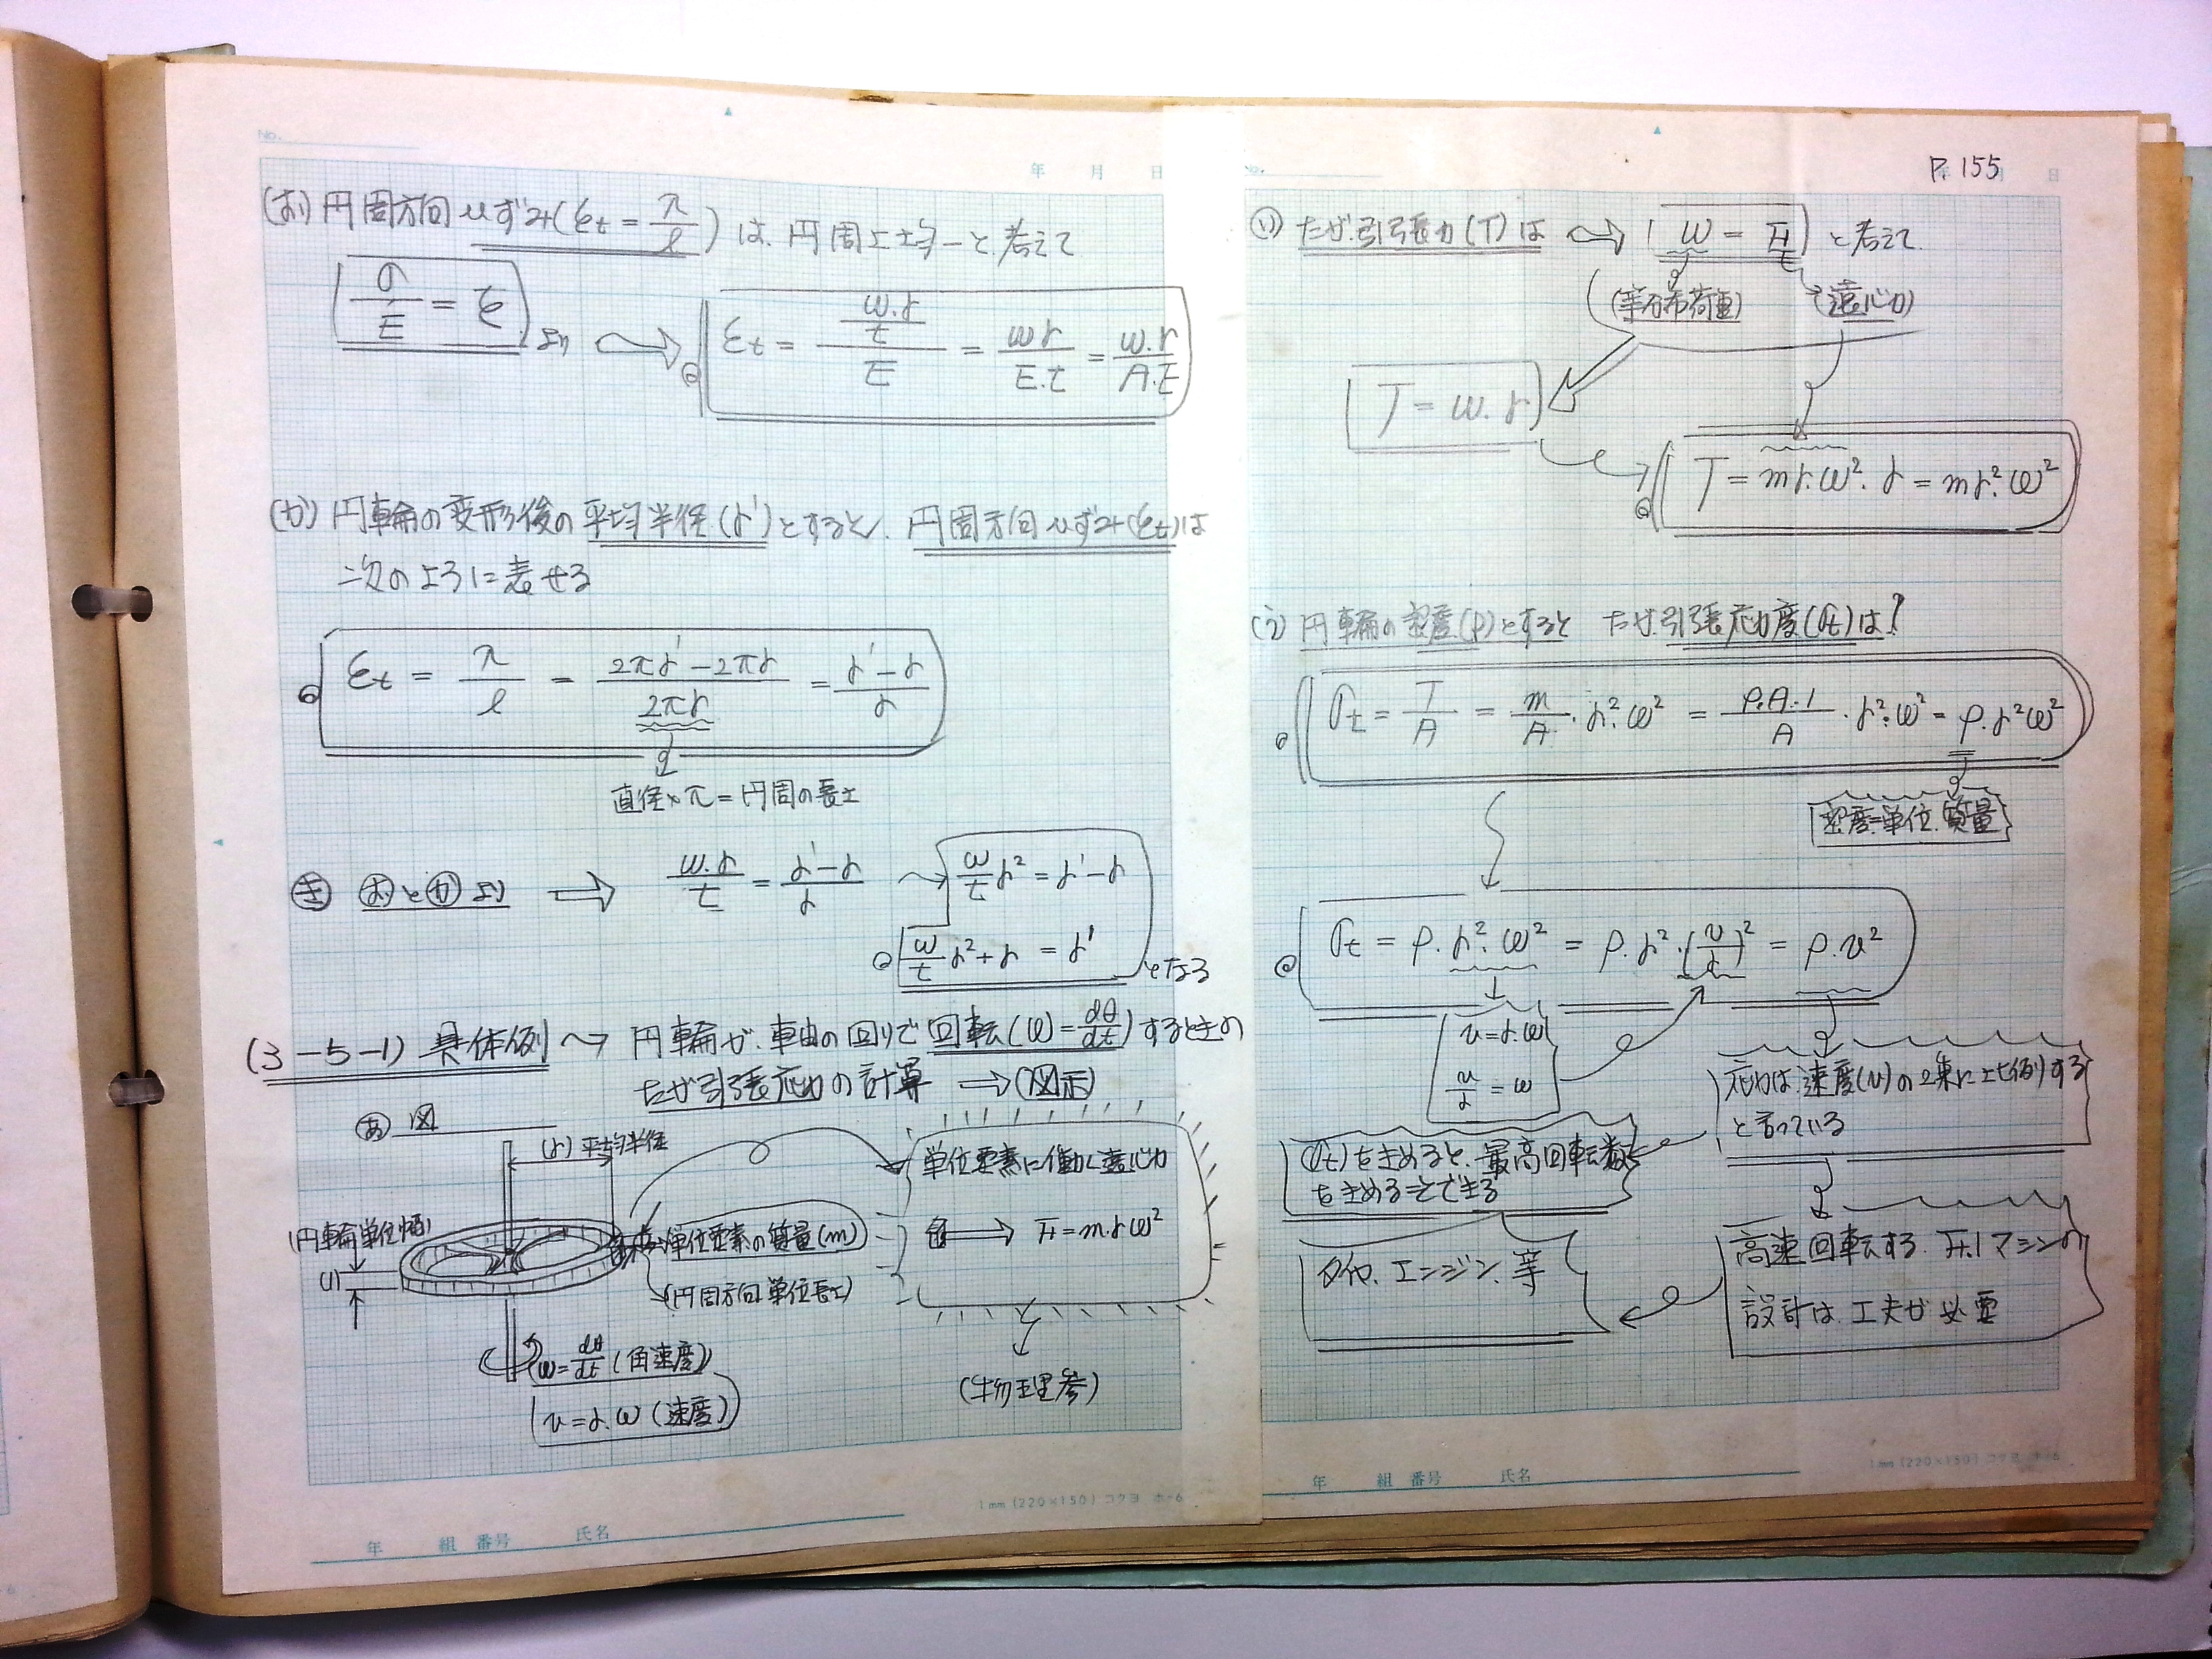 No.
年 月 日
(お) 円周方向ひずみ(εt = λ/l) は、円周上均一と考えて
σ/E = ε より ⇒ εt = (w.r/t)/E = wr/E.t = w.r/A.E
(か) 円輪の変形後の平均半径(r')とすると、円周方向ひずみ(εt)は
次のように表せる
εt = λ/l = (2πr' - 2πr)/2πr = (r' - r)/r
直径×π = 円周の長さ
(き) (お)と(か)より ⇒ w.r/t = (r' - r)/r → w/t r² = r' - r
w/t r² + r = r' となる
(3-5-1) 具体例 → 円輪が、軸の回りで回転(ω = dθ/dt)するときの
たが引張応力の計算 ⇒ (図示)
(あ) 図
(r) 平均半径
(円輪単位幅)
(1)
単位要素の質量(m)
(円周方向単位長さ)
ω = dθ/dt (角速度)
v = r.ω (速度)
単位要素に働く遠心力
⇒ F = m.rω²
(物理参)
1mm (220×150) コクヨ ホ-6
年 組 番号 氏名
No.
年 月 日
P. 155
(い) たが引張力(T)は ⇒ (w = F) と考えて
(等分布荷重) (遠心力)
T = w.r
T = mr.ω².r = mr².ω²
(う) 円輪の密度(ρ)とすると たが引張応力度(σt)は?
σt = T/A = m/A . r².ω² = ρ.A.1/A . r².ω² = ρ.r²ω²
密度=単位.質量
σt = ρ.r².ω² = ρ.r².(v/r)² = ρ.v²
v = r.ω
v/r = ω
応力は速度(v)の2乗に比例する
と言っている
(σt)をきめると、最高回転数
をきめることできる
高速回転する F.1マシンの
設計は、工夫が必要
タイヤ、エンジン、等
1mm (220×150) コクヨ ホ-6
年 組 番号 氏名